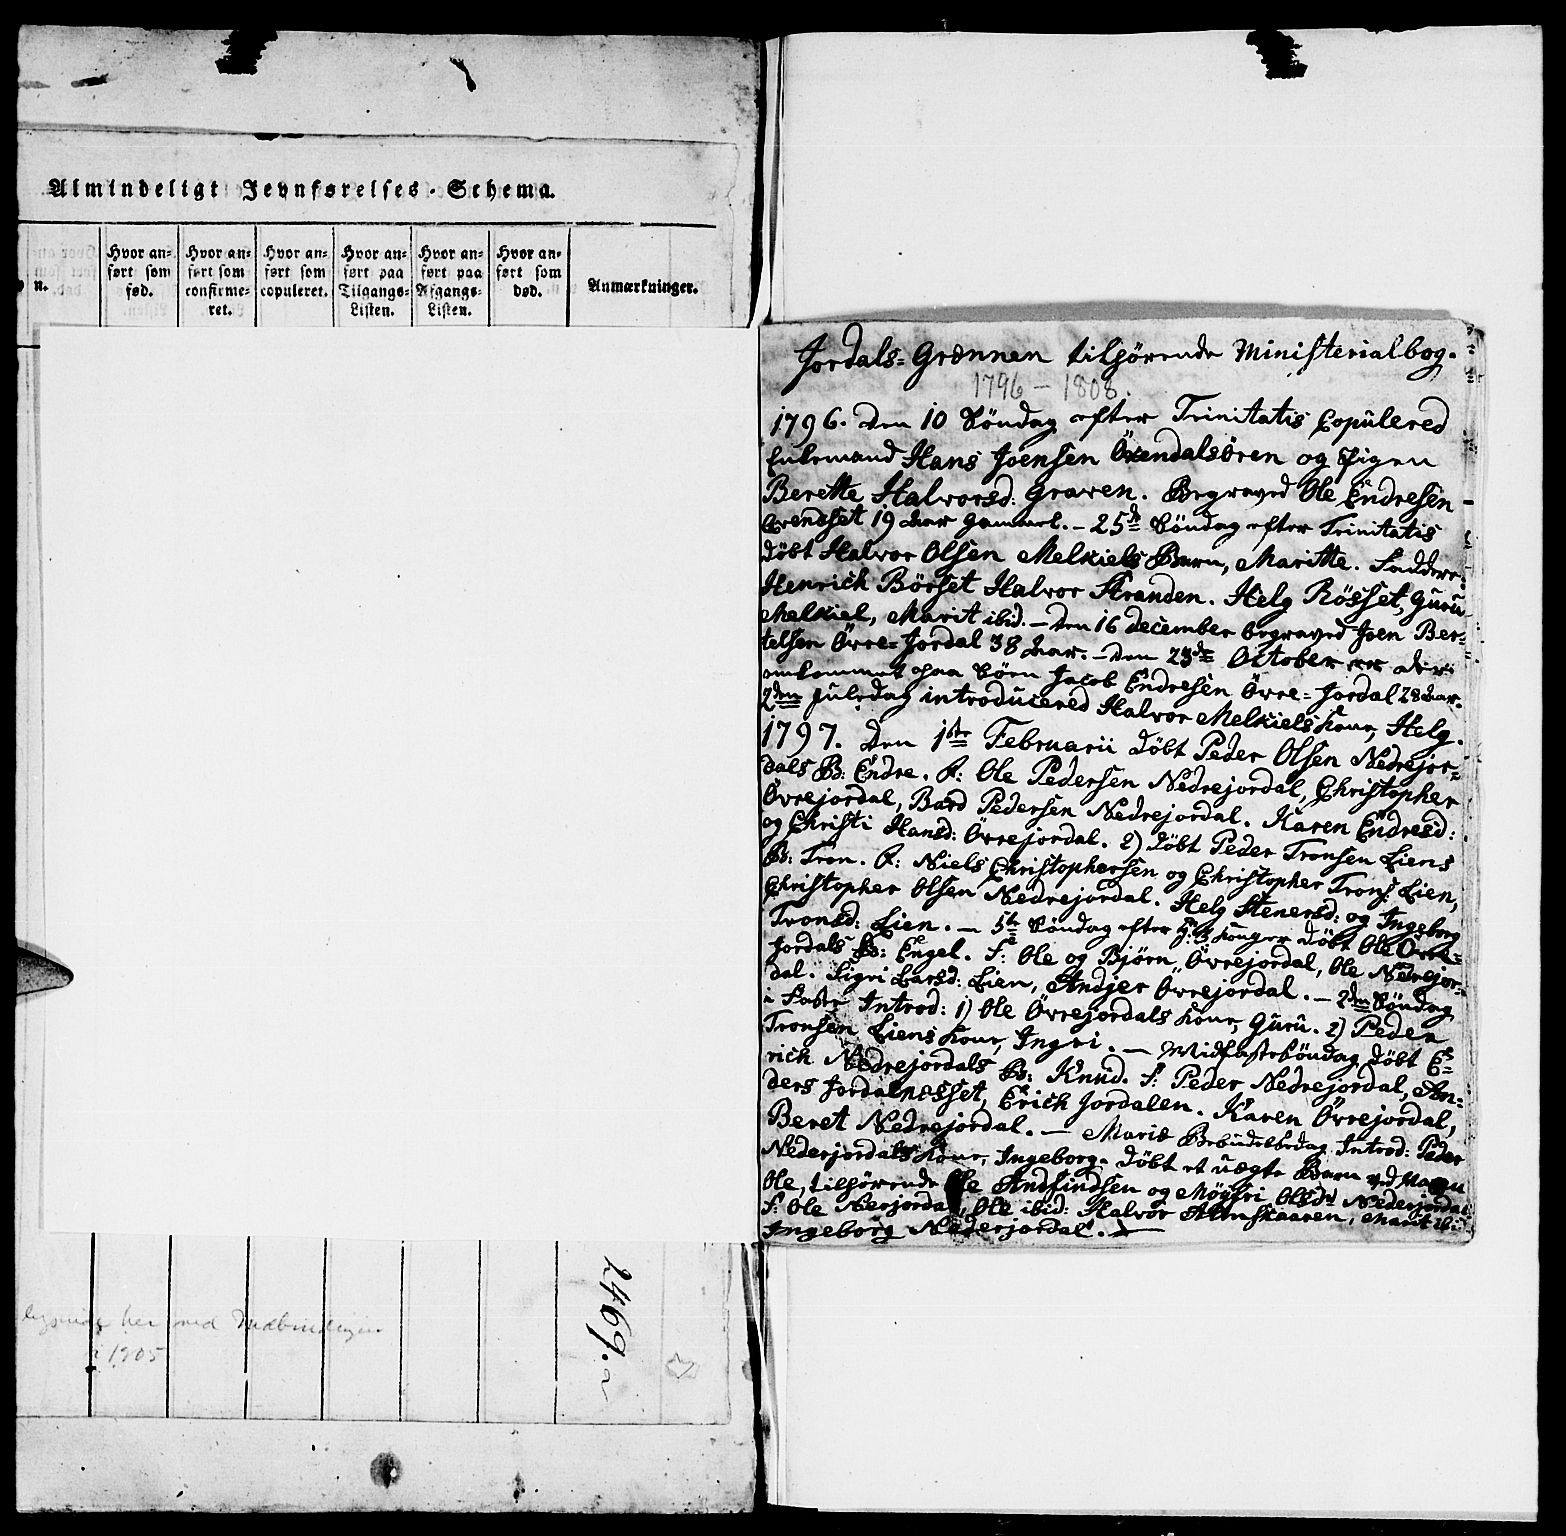 Almindeligt Jevnførelses-Schema.
n.
Hvor anført som fød.
Hvor anført som confirmeret.
Hvor anført som copuleret.
Hvor anført paa Tilgangs-Listen.
Hvor anført paa Afgangs-Listen.
Hvor anført som død.
Anmærkninger.
her ved Indbindingen
i 1905
2469.
Jordals-Grænnen tilhörende Ministerialbog.
1796 – 1808.
1796. Den 10 Söndag efter Trinitatis Copulered
Enkemand Hans Joensen Öxendalsören og Pigen
Berette Halvorsd: Graven. Begraved Ole Endresen
19 Aar gammel. – 25de Söndag efter Trinitatis
döbt Halvor Olsen Melkiels Barn, Maritte. Faddere:
Henrich Börset Halvor Stranden. Helg Rösset, Guru
Melkiel, Marit ibid. – Den 16 december begraved Joen Ber-
telsen Övre-Jordal 38 Aar. – Den 23de October er
omkommet paa Söen Jacob Endresen Övre-Jordal 28 Aar.
2den Juledag introducered Halvor Melkiels Kone, Helg.
1797. Den 1ste Februarii döbt Peder Olsen Nedrejor-
dals B: Endre. F: Ole Pedersen Nedrejordal, Christopher
Övrejordal, Bard Pedersen Nedrejordal. Karen Endresd:
og Christi Hansd: Övrejordal. 2) döbt Peder Tronsen Liens
B: Tron. F: Niels Christophersen og Christopher Trons: Lien,
Christopher Olsen Nedrejordal. Helg Stenersd: og Ingeborg
Tronsd: Lien. – 5te Söndag efter H: 3 Konger döbt Ole Övre-
jordals B: Engel. F: Ole og Bjørn Övrejordal, Ole Nedrejor-
dal. Sigri Larsd: Lien, Andjer Övrejordal. – 2den Söndag
i Faste Introd: 1) Ole Övrejordals Kone, Guru. 2) Peder
Tronsen Liens Kone, Ingri. – Midfastesöndag döbt E-
rich Nedrejordals B: Knud. F: Peder Nedrejordal, An-
ders Jordalnesset, Erich Jordalen. Karen Övrejordal,
Beret Nedrejordal. – Mariæ Bebudelsesdag Introd: Peder
Nederjordals Kone, Ingeborg. döbt et uægte Barn ved Navn
Ole, tilhörende Ole Andfindsen og Möyfri Olsd: Nederjordal
F: Ole Nerjordal, Ole ibid: Halvor Almskaaren, Marit ib:
Ingeborg Nederjordal.